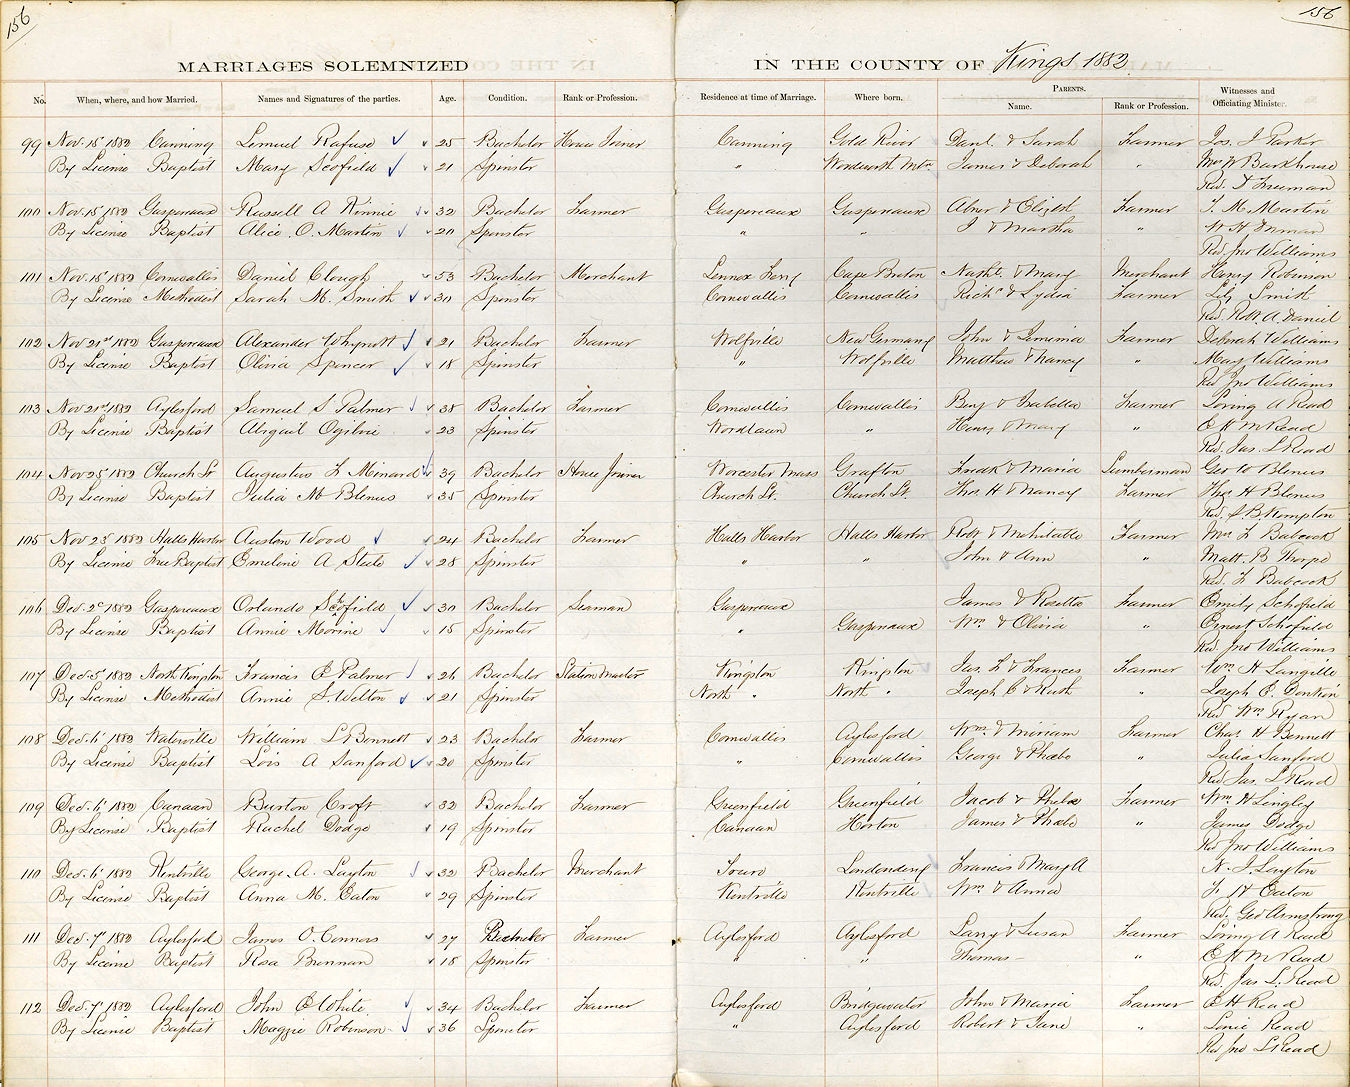 156 156
MARRIAGES SOLEMNIZED IN THE COUNTY OF Kings 1882
PARENTS.
No. When, where, and how Married. Names and Signatures of the parties. Age. Condition. Rank or Profession. Residence at time of Marriage. Where born. Name. Rank or Profession. Witnesses and Officiating Minister.
99 Nov. 15 1882 Canning Lemuel Rafuse 25 Bachelor House Joiner Canning Gold River Danl & Sarah Farmer Jos. J Parker
By License Baptist Mary Scofield 21 Spinster " James & Deborah " Wm W Barkhouse
Rev. D Freeman
100 Nov. 15' 1882 Gaspereaux Russell A Kinnie 32 Bachelor Farmer Gaspereaux Gaspereaux Abner & Elizbt Farmer J. M. Martin
By License Baptist Alice O. Martin 20 Spinster " " J & Martha " W H
Rev Jno Williams
101 Nov. 15' 1882 Cornwallis Daniel Clough 53 Bachelor Merchant Lennox Ferry Cape Breton & Mary Merchant Henry Robinson
By License Methodist Sarah M. Smith 30 Spinster Cornwallis Cornwallis Richd & Lydia Farmer Lily Smith
Rev. Robt. A. Daniel
102 Nov 21st 1882 Gaspereaux Alexander Whynott 21 Bachelor Farmer Wolfville New Germany John & Jemima Farmer Deborah Williams
By License Baptist Olivia Spencer 18 Spinster " Wolfville Matthew & Nancy " Mary Williams
Rev Jno Williams
103 Nov 21st 1882 Aylesford Samuel S Palmer 38 Bachelor Farmer Cornwallis Cornwallis Benj & Isabella Farmer Loring A Read
By License Baptist Abigail Ogilvie 23 Spinster " Henry & Mary " E H M Read
Rev. Jas. L Read
104 Nov 25' 1882 Church St Augustus F Minard 39 Bachelor House Joiner Worcester Mass Grafton Fredk & Maria Lumberman Geo W Blenus
By License Baptist Julia M Blenus 35 Spinster Church St. Church St. Thos H & Nancy Farmer Thos H Blenus
Rev. S. B. Kempton
105 Nov 28' 1882 Halls Harbor Austen Wood 24 Bachelor Farmer Halls Harbor Halls Harbor Robt & Mehitable Farmer Mrs F Babcock
By License Free Baptist Emeline A Steele 28 Spinster " " John & Ann " Matt. B Thorpe
Rev. F Babcock
106 Dec. 2d 1882 Gaspereaux Orlando Schofield 30 Bachelor Seaman Gaspereaux James & Rosetta Farmer Emily Schofield
By License Baptist Annie Morine 15 Spinster " Gaspereaux Wm & Olivia " Ernest Schofield
Rev. Jno Williams
107 Dec. 5' 1882 North Kingston Francis E Palmer 26 Bachelor Station Master Kingston Kingston Jas. F & Frances Farmer Wm H Langille
By License Methodist Annie S. Welton 21 Spinster North " North " Joseph C & Ruth " Joseph C. Donkin
Rev Wm Ryan
108 Dec. 6' 1882 Waterville William L Bennett 23 Bachelor Farmer Cornwallis Aylesford Wm & Miriam Farmer Chas. H Bennett
By License Baptist Lois A Sanford 20 Spinster " Cornwallis George & Phebe " Julia Sanford
Rev Jas. L Read
109 Dec. 6' 1882 Canaan Burton Croft 32 Bachelor Farmer Greenfield Greenfield Jacob & Phebe Farmer Wm W Lingley
By License Baptist Rachel Dodge 19 Spinster Canaan Horton James & Phebe " James Dodge
Rev Jno Williams
110 Dec. 6' 1882 Kentville George A. Layton 32 Bachelor Merchant Truro Londonderry Francis & Mary A N. J. Layton
By License Baptist Anna M. Eaton 29 Spinster Kentville Kentville Wm & Anna F W Eaton
Rev. Geo Armstrong
111 Dec. 7' 1882 Aylesford James O. Connors 27 Bachelor Farmer Aylesford Aylesford Larry & Susan Farmer Loring A Read
By License Baptist Rosa Brennan 18 Spinster " " Thomas — " E H M Read
Rev. Jas L. Read
112 Dec. 7' 1882 Aylesford John E White 34 Bachelor Farmer Aylesford Bridgewater John & Maria Farmer E H Read
By License Baptist Maggie Robinson 36 Spinster " Aylesford Robert & Jane " Lonie Read
Rev Jno L Read